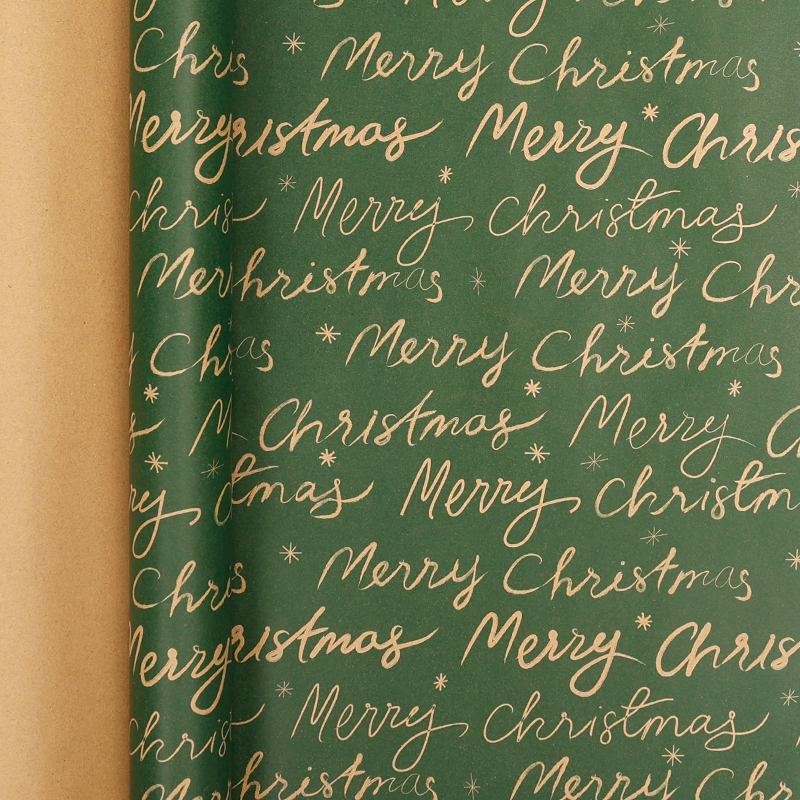 Chris Merry Christmas
Merry ristmas Merry Chris
Chris Merry Christmas
Mer hristmas Merry Chr
Ch as Merry Christmas
M Christmas Merry C
ry tmas Merry Christm
Chris Merry Christmas
Merry ristmas Merry Chris
Chris Merry Christmas
Mer hristmas Merry Chr